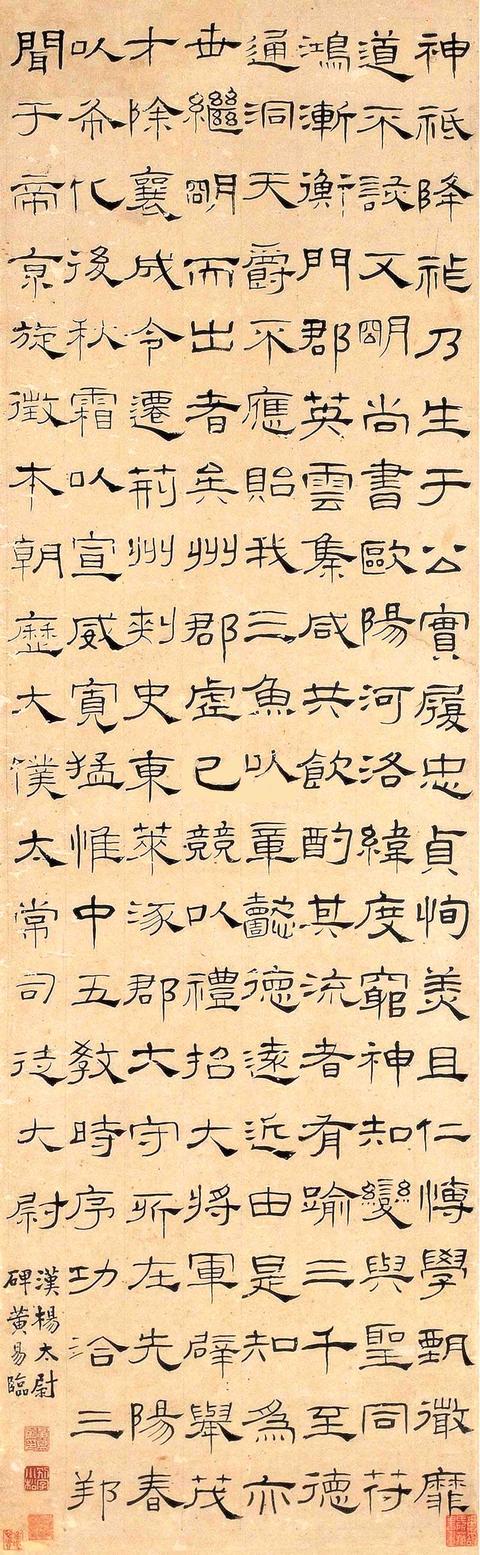 神祗降祉乃生于公實履忠貞恂美且仁愽學甄徹靡
道不該又明尚書歐陽河洛緯度窮神知變與聖同符
鴻漸衡門郡英雲集咸共飲酌其流者有踰三千至德
通洞天爵不應貽我三魚以章懿德遠近由是知為亦
世繼明而出者矣州郡虛己競以禮招大將軍辟舉茂
才除襄成令遷荊州刺史東萊涿郡大守所在先陽春
以布化後秋霜以宣威寬猛惟中五教時序功洽三邦
聞于帝京旋徵本朝歷大僕太常司徒大尉
漢楊太尉
碑黃易臨